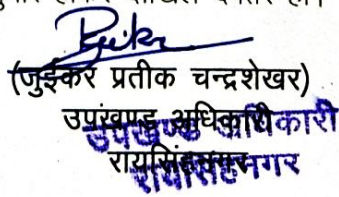 (जुईकर प्रतीक चन्द्रशेखर)
उपखण्ड अधिकारी
रायसिंहनगर
उपखण्ड अधिकारी
रायसिंहनगर